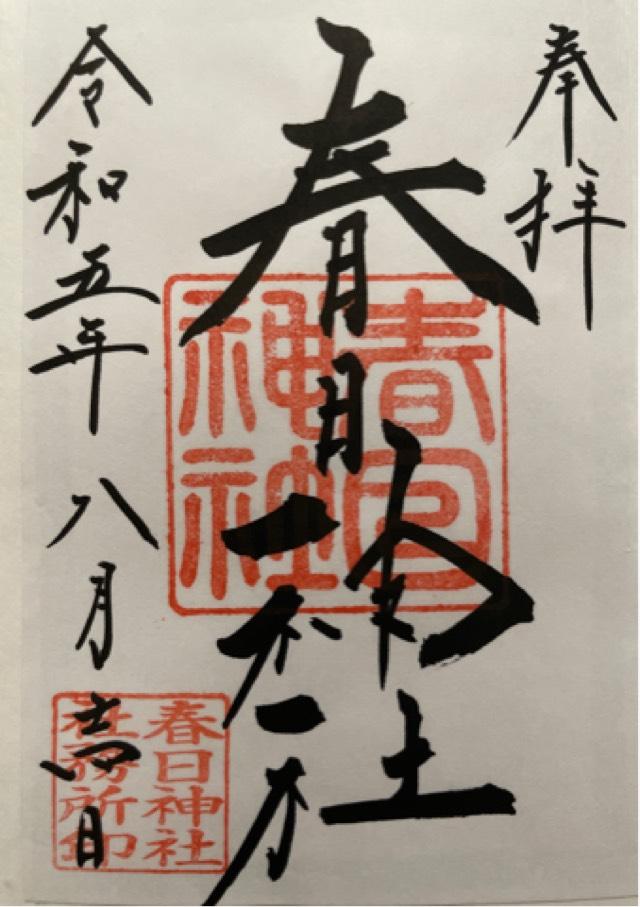 奉拝
春日神社
春日神社
令和五年八月 日
春日神社
社務所印